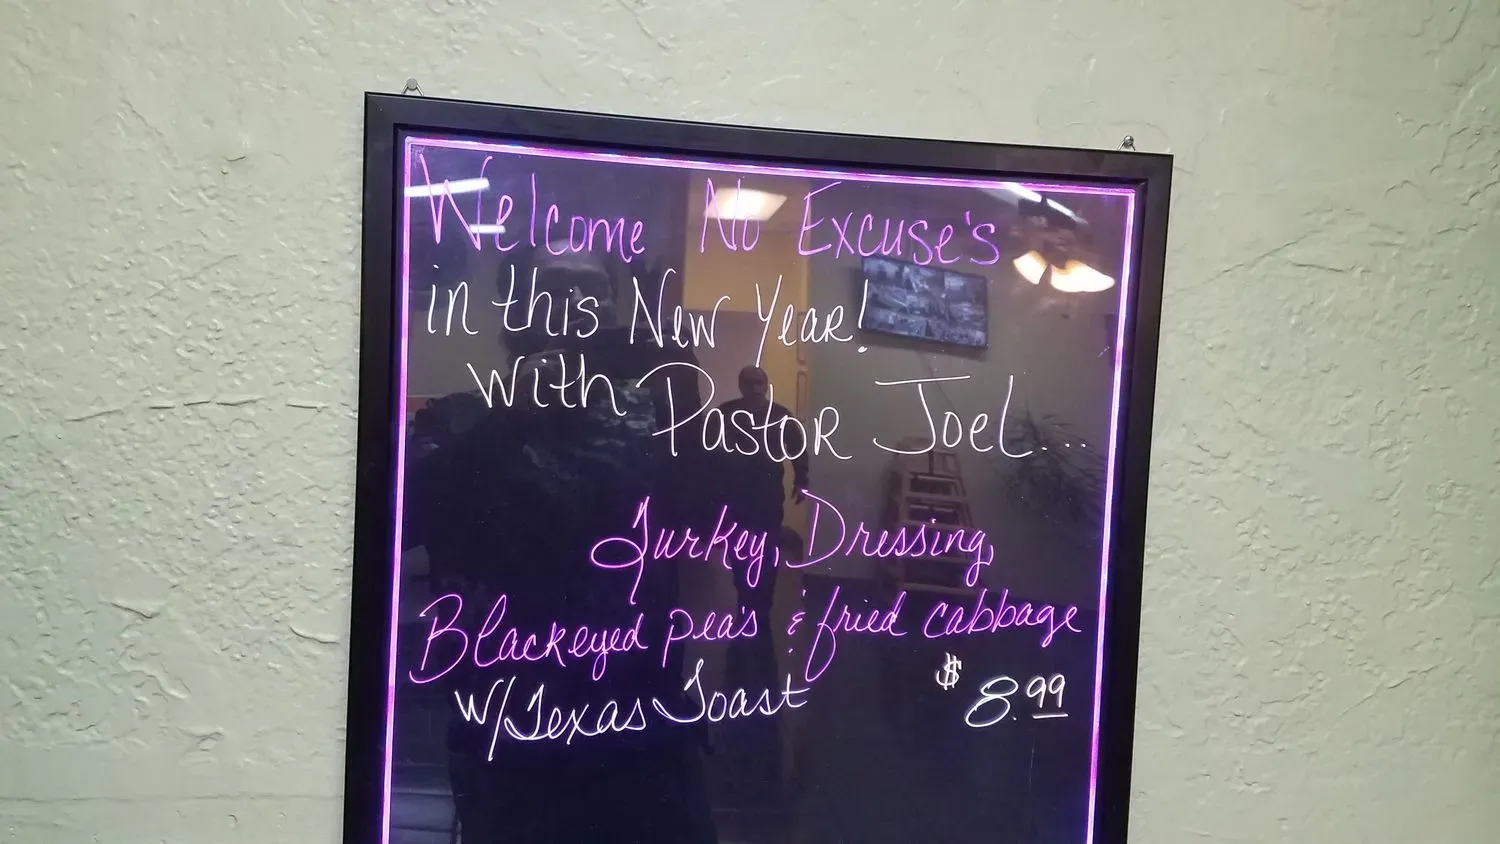 Welcome No Excuse's
in this New Year!
with Pastor Joel...
Turkey, Dressing,
Blackeyed pea's & fried cabbage
w/Texas Toast $8.99